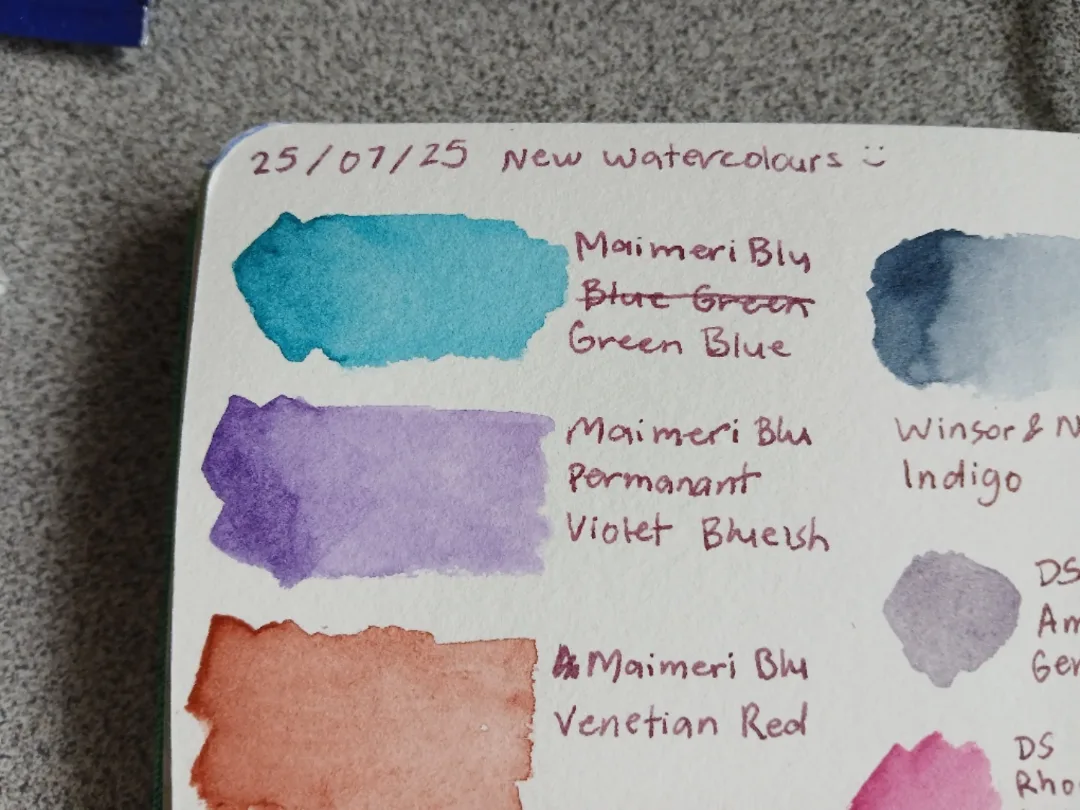 25/07/25 New watercolours :)
Maimeri Blu
Blue Green
Green Blue
Maimeri Blu
Permanant
Violet Blueish
Maimeri Blu
Venetian Red
Winsor & N
Indigo
DS
Am
Gen
DS
Rho